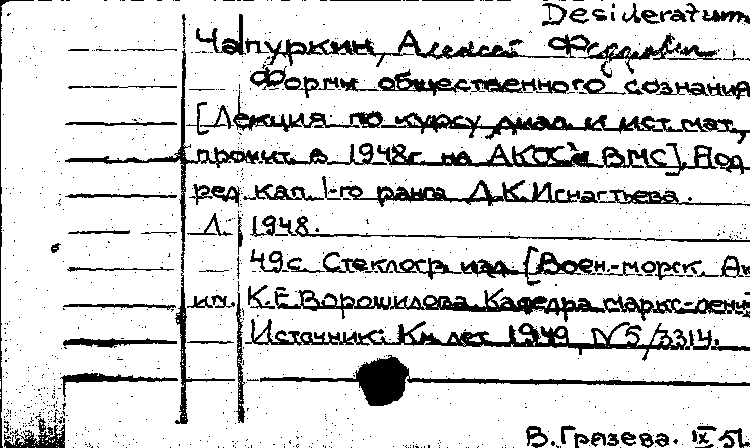 Desideratum
Чапуркин, Алексей Федорович.
Формы общественного сознания
[Лекция по курсу диал. и ист. мат.,
прочит. в 1948г. на АКОС'е ВМС]. Под
ред. кап. 1-го ранга Д.К. Игнатьева.
Л. 1948.
49с. Стеклогр. изд. [Воен.-морск. Ак
им. К.Е. Ворошилова Кафедра маркс-лени
Источник: Кн. лет. 1949, N 5/3314.
В. Грязева. IX 51